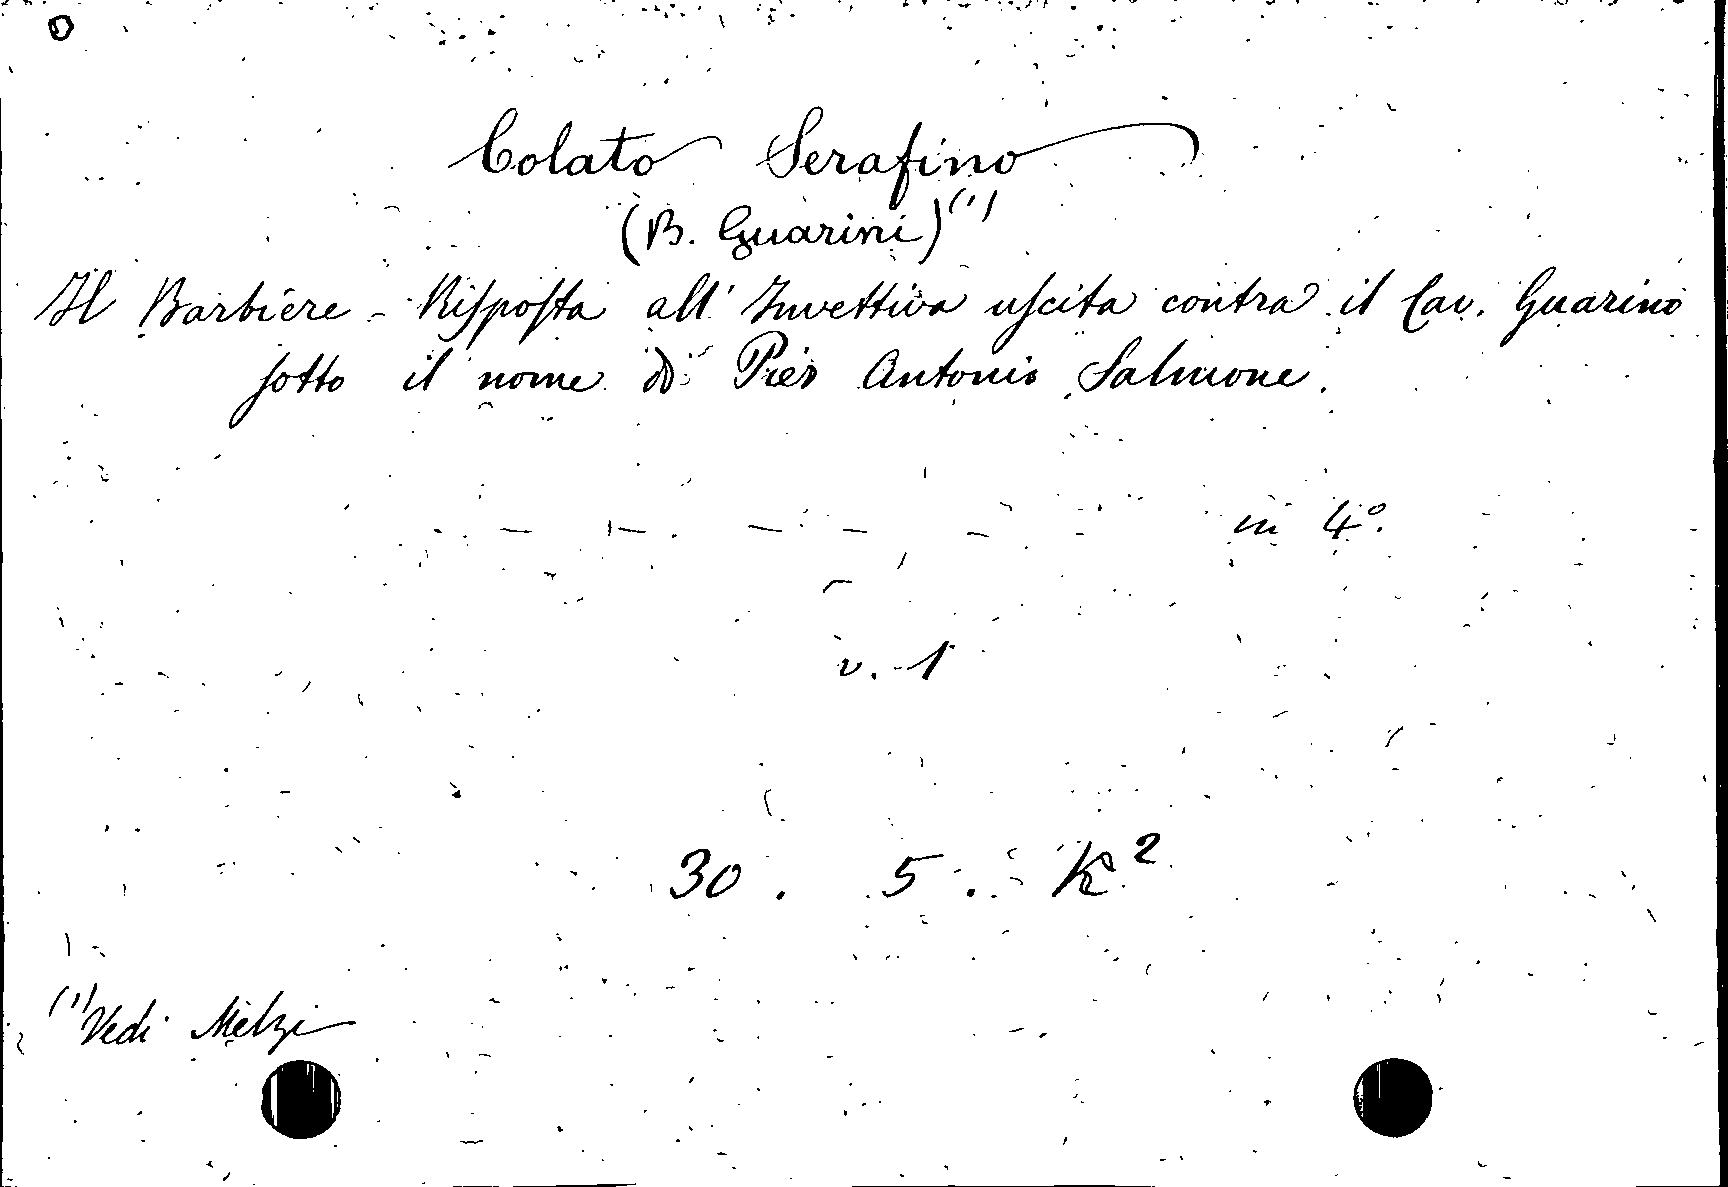 Colato Serafino
(B. Guarini)(1)
Il Barbiere - Risposta all' Invettiva uscita contra il Cav. Guarino
sotto il nome di Pier Antonio Salmone.
— — — — — in 4°.
v. 1
30. 5. K²
(1) Vedi Melzi